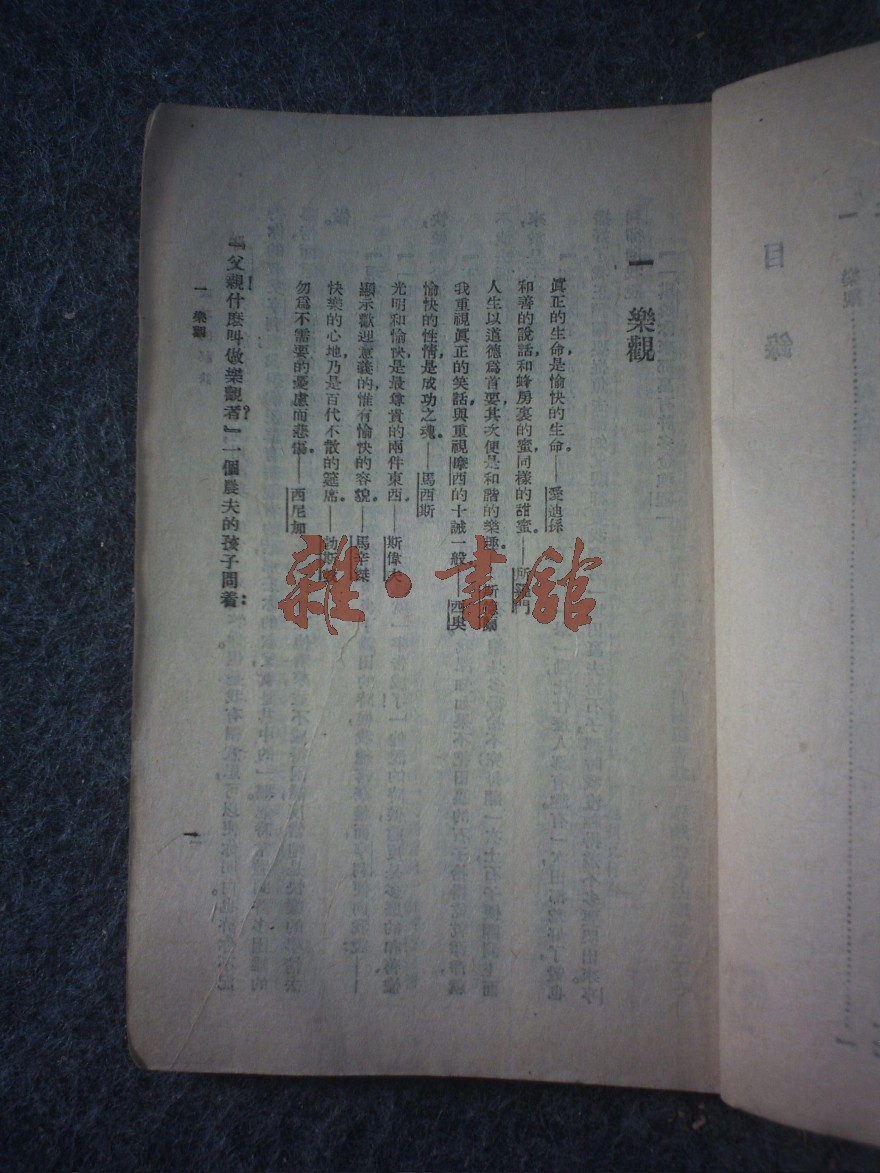 目錄
一 樂觀
一 樂觀
眞正的生命，是愉快的生命。——愛迪孫
和善的說話，和蜂房裏的蜜，同樣的甜蜜——所羅門
人生以道德爲首要，其次便是和諧的樂趣。——斯
我重視眞正的笑話，與重視摩西的十誡一般——西奧
愉快的性情，是成功之魂。——馬西斯
光明和愉快，是最尊貴的兩件東西。——斯偉夫
顯示歡迎意義的，惟有愉快的容貌。——馬辛傑
快樂的心地，乃是百代不散的筵席。——勃斯
勿爲不需要的憂慮而悲傷。——西尼加
『父親！什麽叫做樂觀者？』一個農夫的孩子問着：
一 樂觀
一
雜·書館